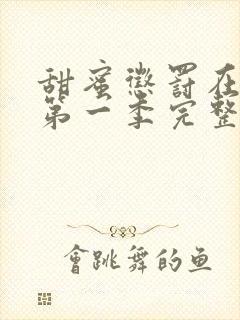 甜蜜懲罰在
第一季完整
會跳舞的鱼